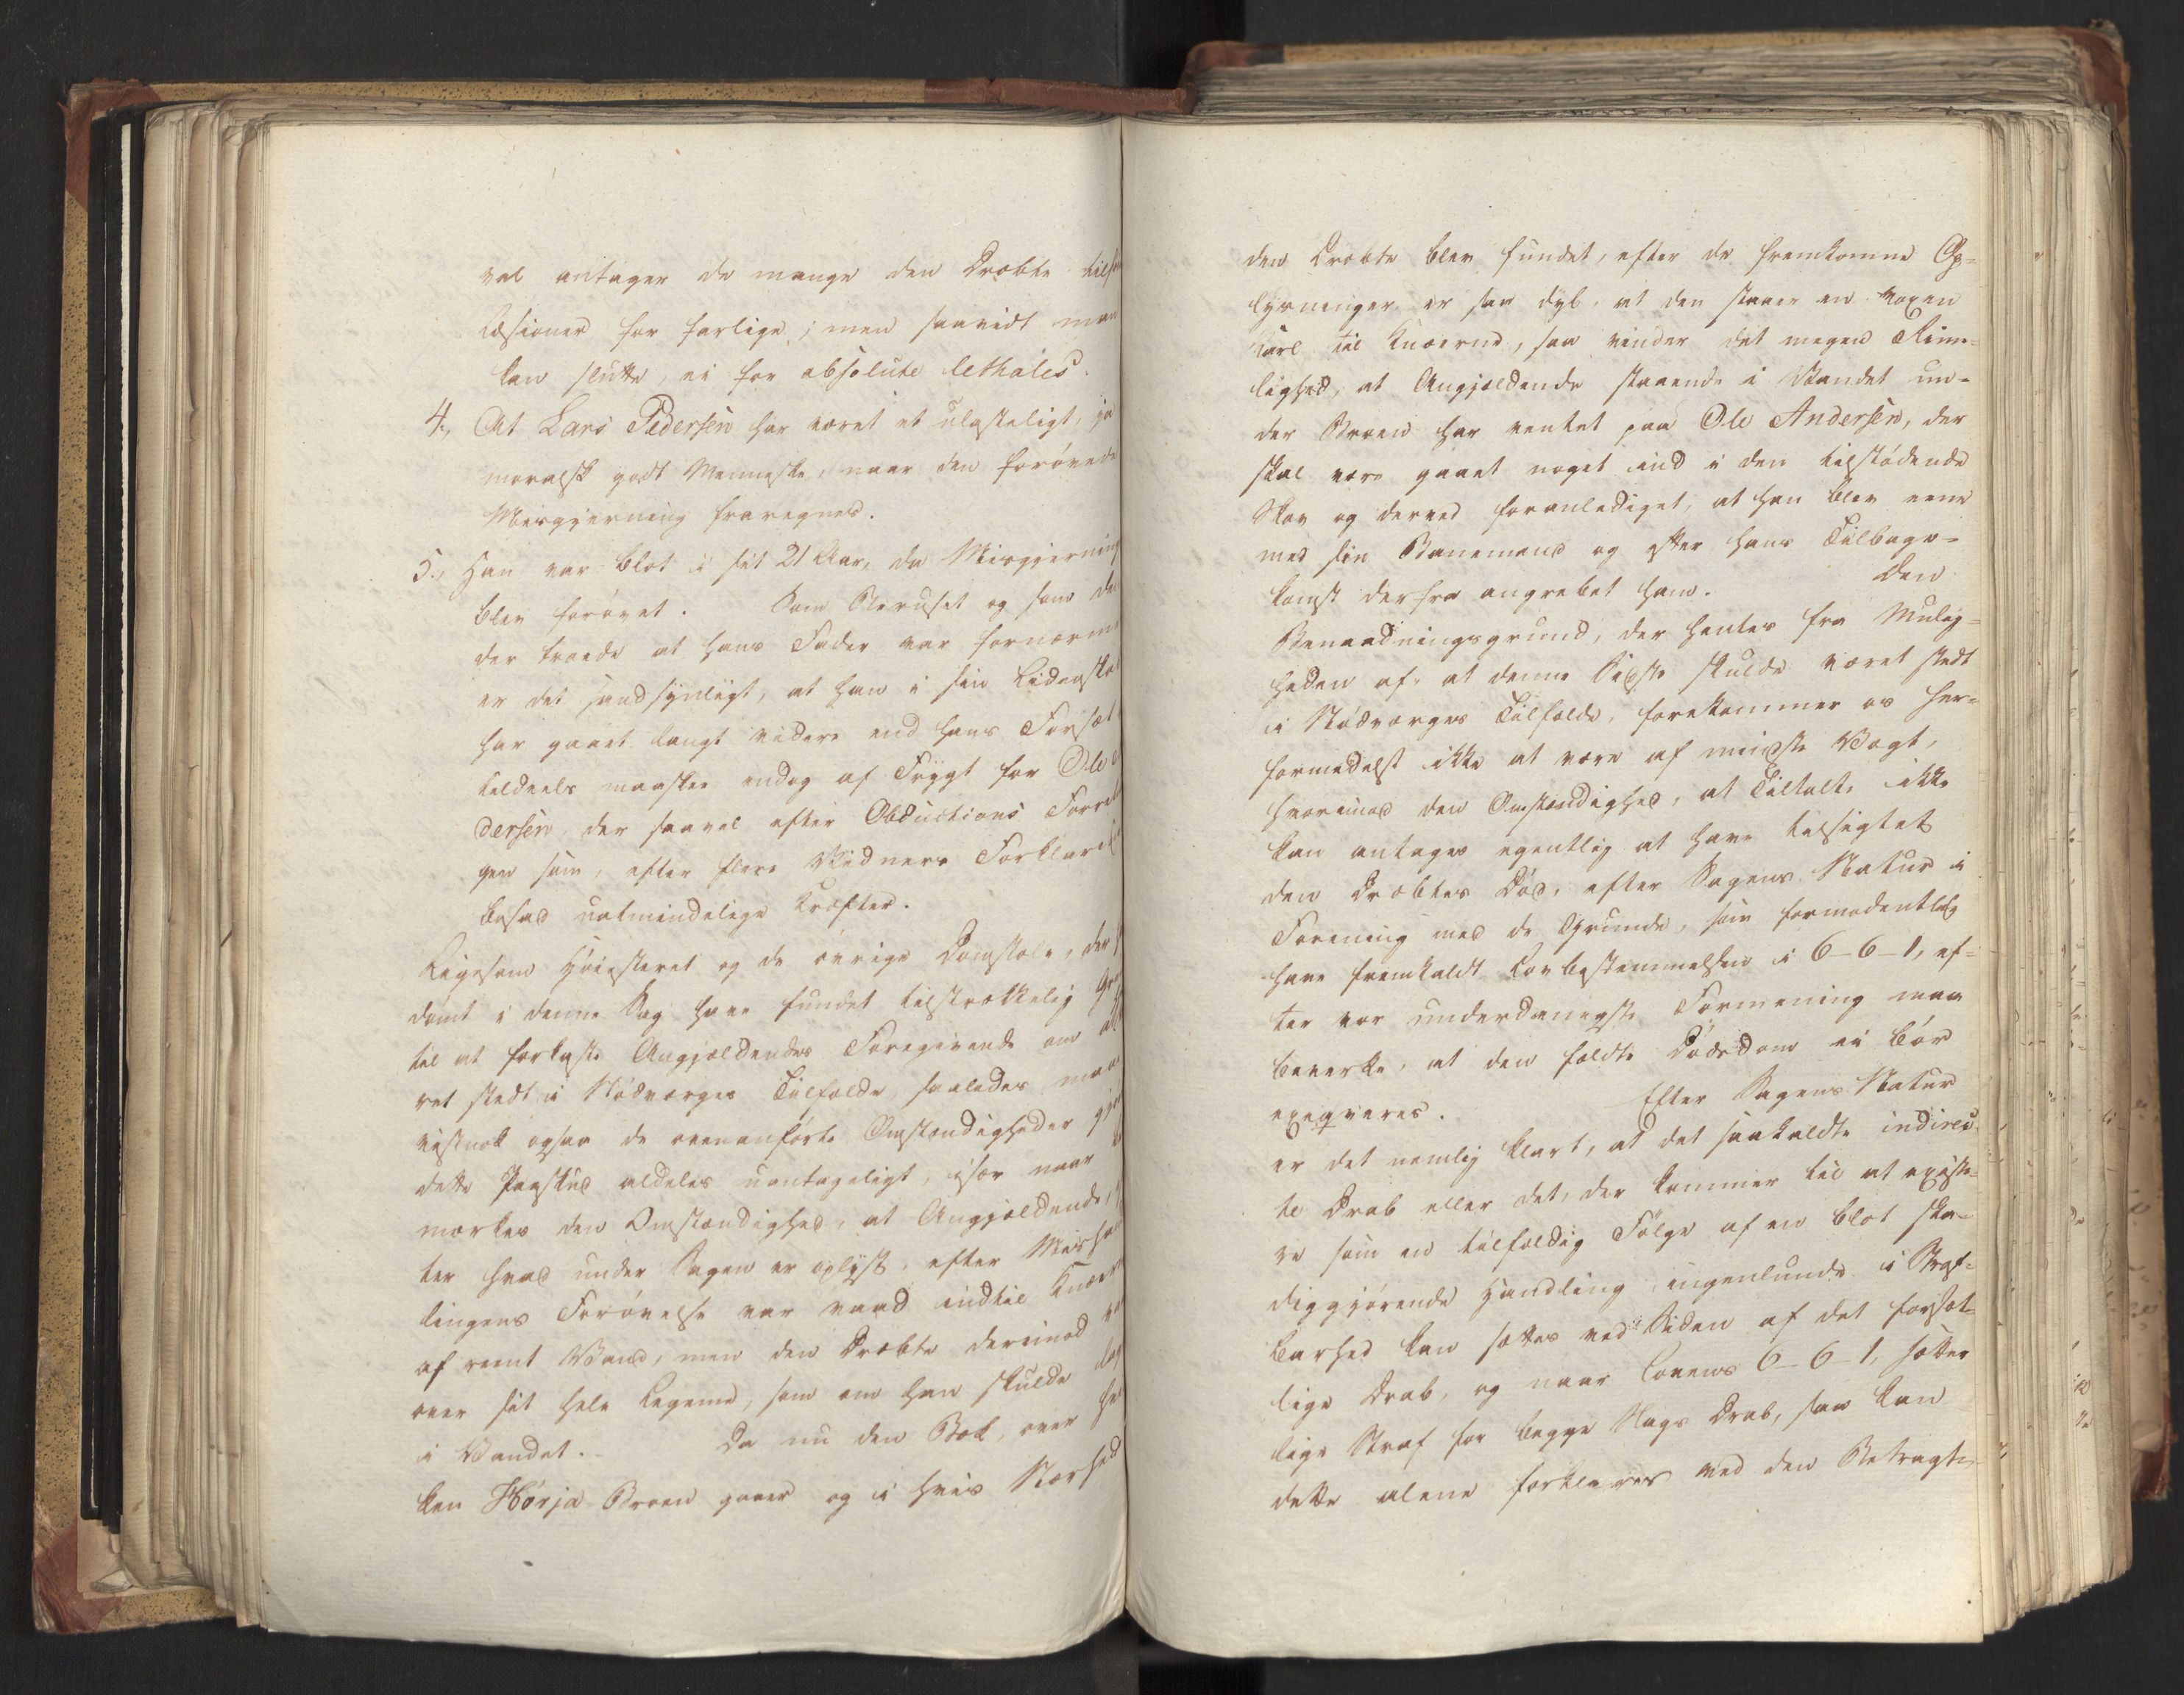 vel antager de mange den Dræbte tilf
Læsioner for farlige; men saavidt man
kan slutte, ei for absolute lethales.
4., At Lars Pedersen har været et ulasteligt, ja
moralsk godt Menneske, naar den forøvede
Misgjerning fraregnes.
5., Han var blot i sit 21 Aar, da Misgjerning
blev forøvet. Som Beruset og som den
der troede at hans Fader var fornærme
er det sandsynligt, at han i sin Lidenska
har gaaet langt videre end hans Forsæt
tildeels maaskee endog af Frygt for Ole
dersen, der saavel efter Obductions Forret
gen som, efter flere Vidners Forklarel
besad ualmindelige Kræfter.
Ligesom Høiesteret og de øvrige Domstole, der
dømt i denne Sag have fundet tilstrækkelig Gr
til at forkaste Angjældendes Foregivende om at
ret stedt i Nødværges Tilfælde, saaledes maa
vistnok ogsaa de ovenanførte Omstændigheder gjø
dette Paaskud aldeles uantageligt, især naar
mærkes den Omstændighed, at Angjældende,
ter hvad under Sagen er oplyst, efter Misha
lingens Forøvelse var vaad indtil Knæer
af reent Vand, men den Dræbte derimod
over sit hele Legeme, som om han skulde
i Vandet. Da nu den Bæk, over
ken Hørja-Broen gaaer og i hvis Nærhed
den Dræbte blev fundet, efter de fremkomne Op-
lysninger er saa dyb, at den staaer en voxen
Karl til Knæerne, saa vinder det megen Rime-
lighed, at Angjældende staaende i Vandet un-
der Broen har ventet paa Ole Andersen, der
skal være gaaet noget ind i den tilstødende
Skov og derved foranlediget, at han blev ene
med sin Banemand og efter hans Tilbage-
komst derfra angrebet ham. Den
Benaadningsgrund, der hentes fra Mulig-
heden af, at denne Sidste skulde været stedt
i Nødværges Tilfælde, forekommer os her-
formedelst ikke at være af mindste Vægt,
hvorimod den Omstændighed, at Tiltalte ikke
kan antages egentlig at have tilsigtet
den Dræbtes Død, efter Sagens Natur i
Forening med de Grunde, som formodentlig
have fremkaldt Lovbestemmelsen i 6-6-1, ef-
ter vor underdanigste Formening maa
bevirke, at den fældte Dødsdom ei bør
exeqveres. Efter Sagens Natur
er det nemlig klart, at det saakaldte indirec-
te Drab eller det, der kommer til at existe-
re som en tilfældig Følge af en blot ska-
diggjørende Handling, ingenlunde i Straf-
barhed kan sættes ved Siden af det forsæt-
lige Drab, og naar Lovens 6-6-1, sætter
lige Straf for begge Slags Drab, saa kan
dette alene forklares ved den Betragt-